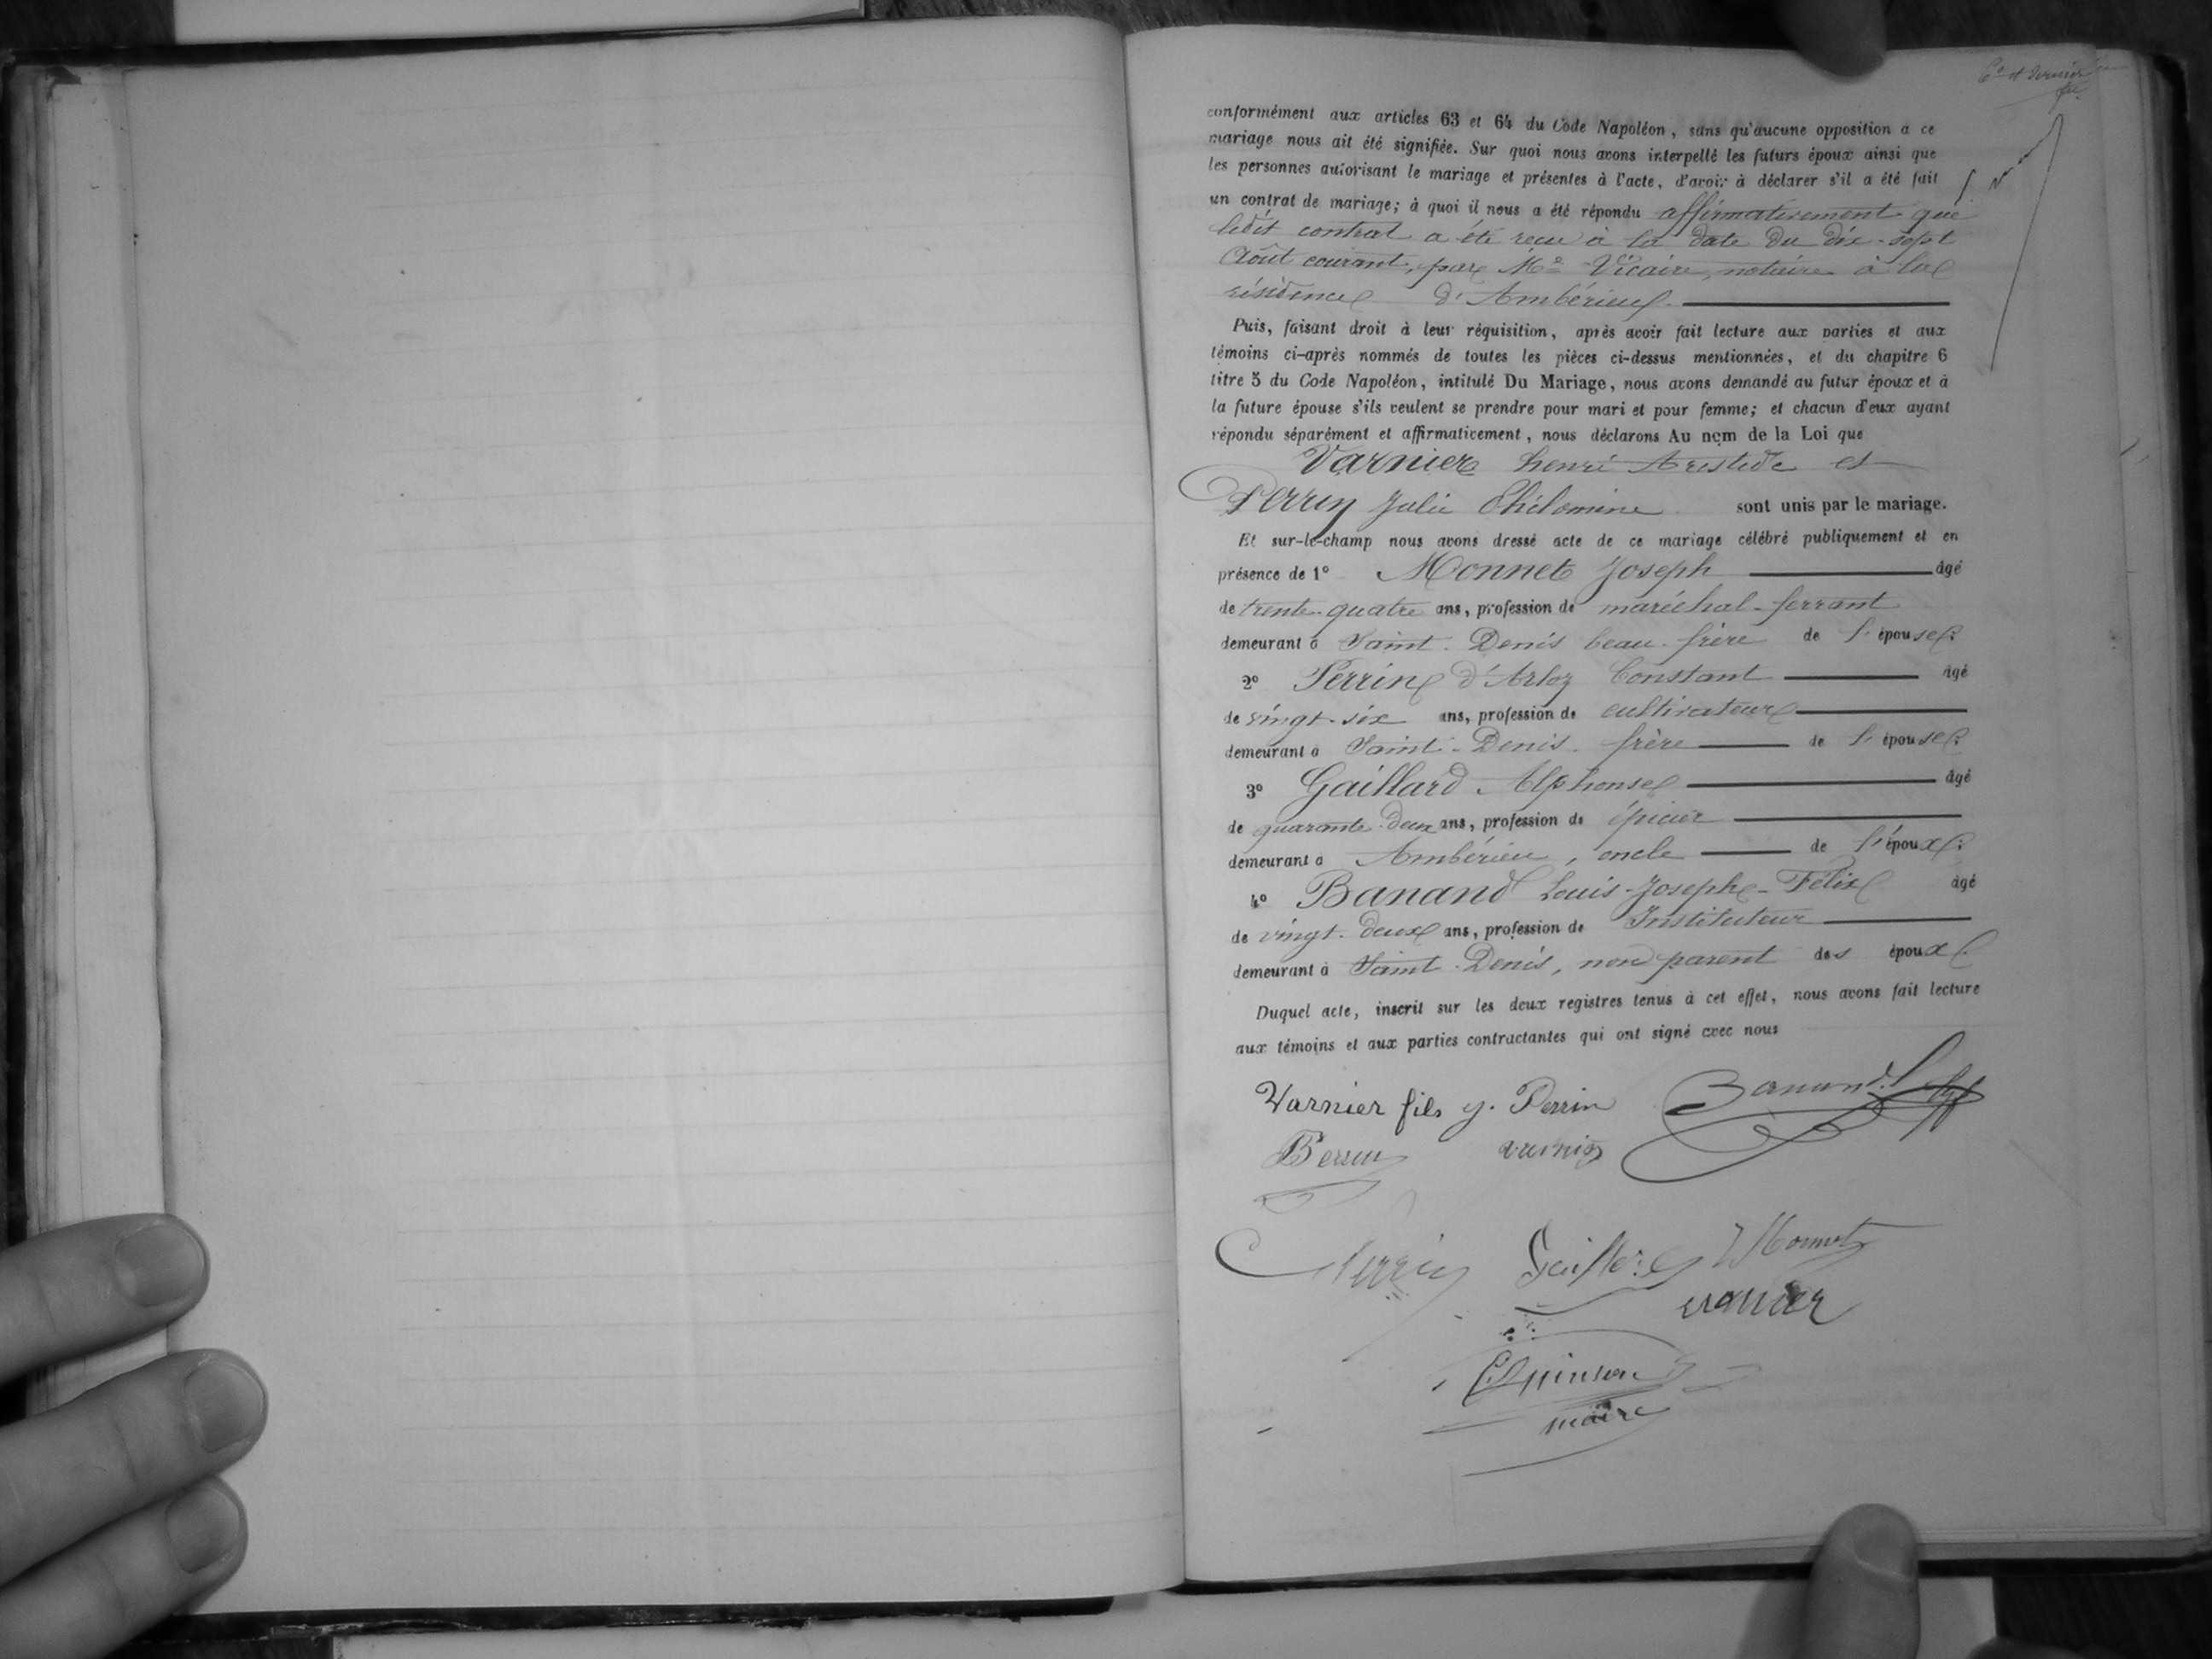 6e et dernier
conformément aux articles 63 et 64 du Code Napoléon, sans qu'aucune opposition a ce
mariage nous ait été signifiée. Sur quoi nous avons interpellé les futurs époux ainsi que
les personnes autorisant le mariage et présentes à l'acte, d'avoir à déclarer s'il a été fait
un contrat de mariage; à quoi il nous a été répondu affirmativement que
ledit contrat a été recu à la date du dix-sept
Août courant, par Me Vicaire, notaire à la
résidence d'Ambérieu.
Puis, faisant droit à leur réquisition, après avoir fait lecture aux parties et aux
témoins ci-après nommés de toutes les pièces ci-dessus mentionnées, et du chapitre 6
titre 5 du Code Napoléon, intitulé Du Mariage, nous avons demandé au futur époux et à
la future épouse s'ils veulent se prendre pour mari et pour femme; et chacun d'eux ayant
répondu séparément et affirmativement, nous déclarons Au nom de la Loi que
Varnier henri Aristide et
Perrin Julie Philomine sont unis par le mariage.
Et sur-le-champ nous avons dressé acte de ce mariage célébré publiquement et en
présence de 1° Monnet Joseph âgé
de trente-quatre ans, profession de maréchal-ferrant
demeurant à Saint-Denis beau-frère de l'épouse.
2° Perrin d'Arloz Constant âgé
de vingt-six ans, profession de cultivateur
demeurant à Saint-Denis frère de l'épouse.
3° Gaillard Alphonse âgé
de quarante-deux ans, profession de épicier
demeurant à Ambérieu, oncle de l'époux.
4° Banand Louis-Joseph-Félix âgé
de vingt-deux ans, profession de Instituteur
demeurant à Saint-Denis, non parent des époux.
Duquel acte, inscrit sur les deux registres tenus à cet effet, nous avons fait lecture
aux témoins et aux parties contractantes qui ont signé avec nous
Varnier fils J. Perrin Banand
Perrin varnier
Perrin Gaillard J Monnet
varnier
maire